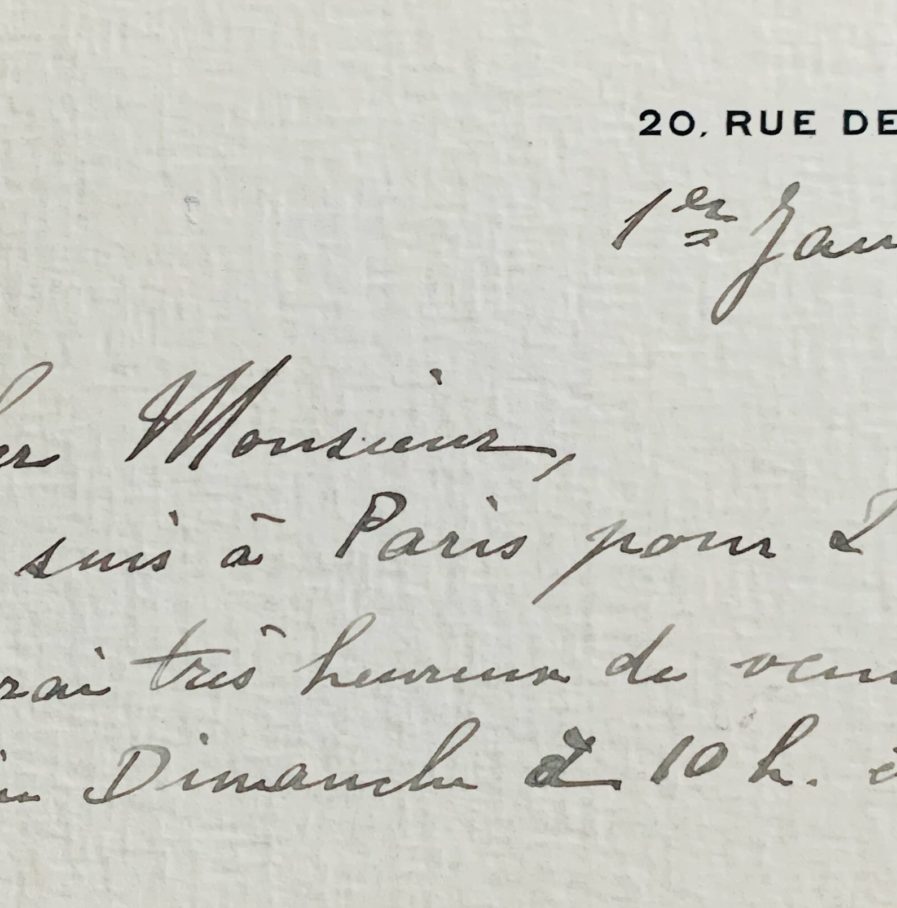 20, RUE DE
1er Jan
er Monsieur,
suis à Paris pour 2
rai très heureux de ven
in Dimanche à 10 h.